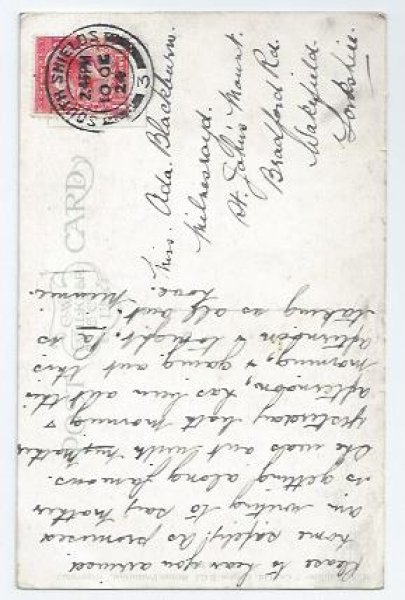 SOUTH SHIELDS
2.45 PM
10 DE
24
3
POST CARD
Miss. Ada. Blackburn.
Milnesroyd.
St. John's Mount.
Bradford Rd.
Wakefield.
Yorkshire.
Please to hear you arrived
home safely. As promised
am writing to say Mother
is getting along famous.
She was out with my Father
yesterday both morning &
afternoon, has been out this
morning, & going out this
afternoon & to-night. Pa is
taking us all out.
Love. Minnie.